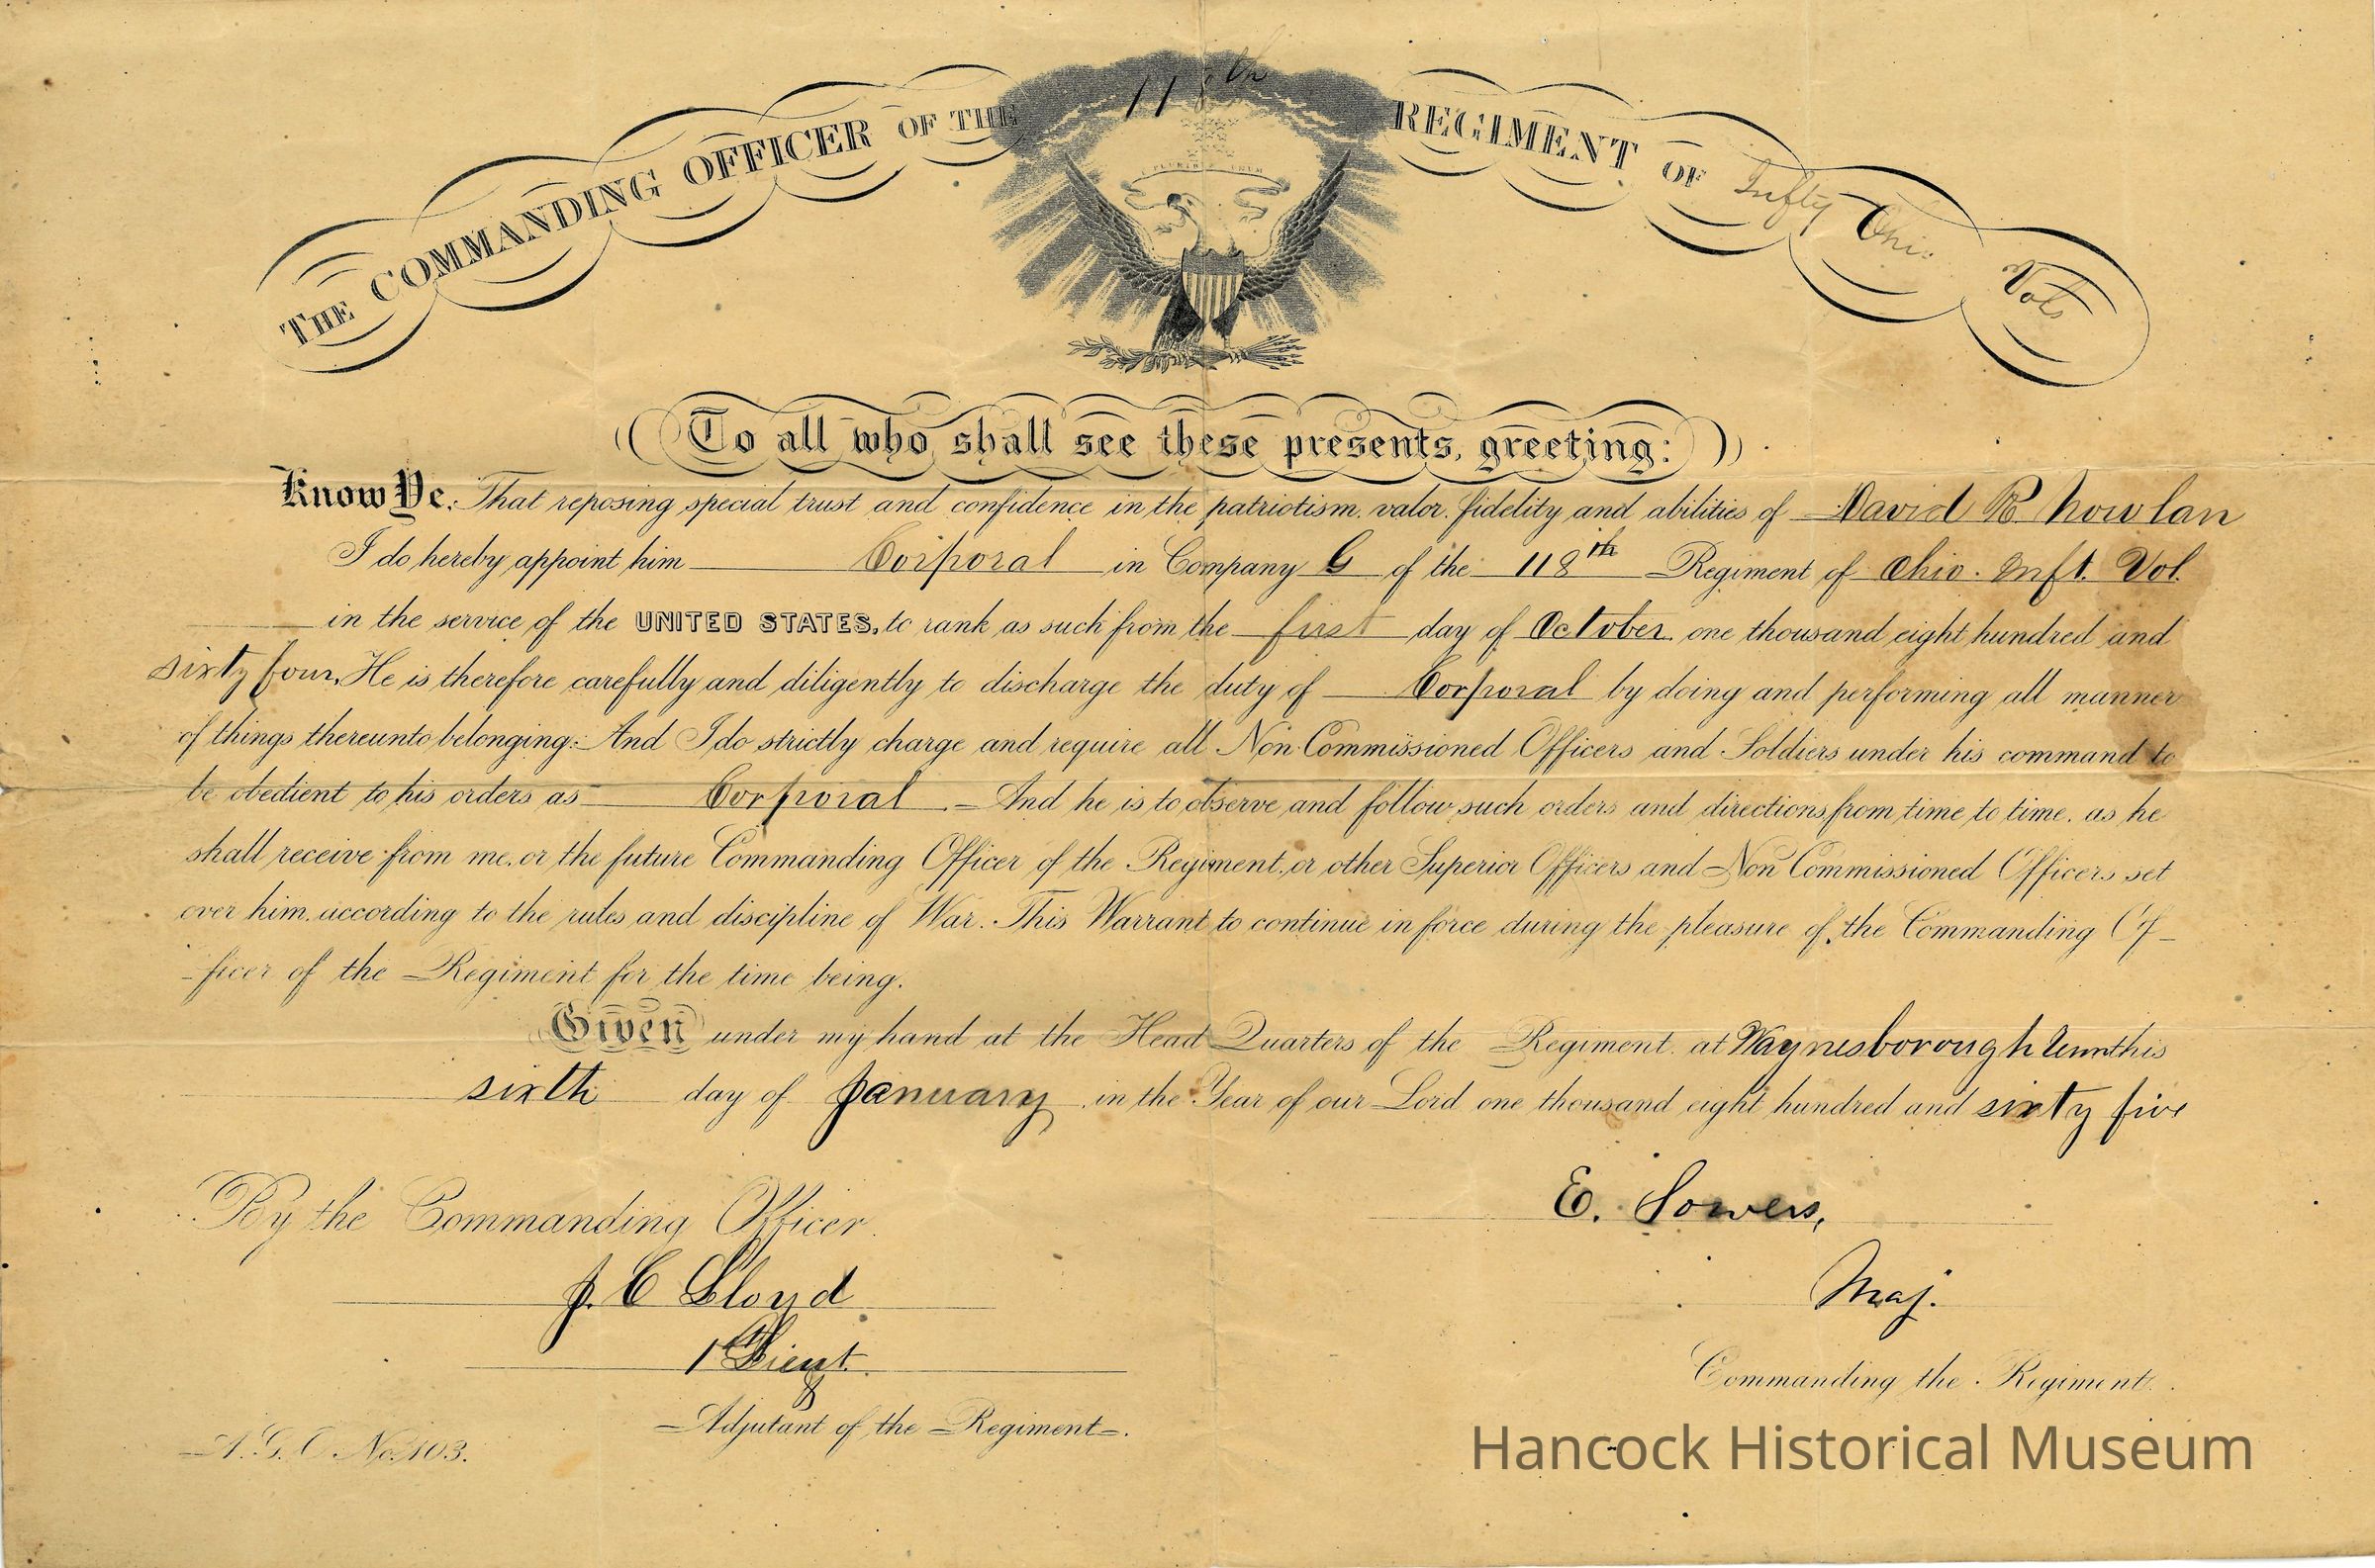 THE COMMANDING OFFICER OF THE 118th REGIMENT OF Infty Ohio Vols
E PLURIBUS UNUM
To all who shall see these presents, greeting:
Know Ye: That reposing special trust and confidence in the patriotism, valor, fidelity and abilities of David R. Nowlan
I do hereby appoint him Corporal in Company G of the 118th Regiment of Ohio. Inft. Vol.
in the service of the UNITED STATES, to rank as such from the first day of October one thousand eight hundred and
sixty four, He is therefore carefully and diligently to discharge the duty of Corporal by doing and performing all manner
of things thereunto belonging: And I do strictly charge and require all Non-Commissioned Officers and Soldiers under his command to
be obedient to his orders as Corporal. And he is to observe and follow such orders and directions, from time to time, as he
shall receive from me, or the future Commanding Officer of the Regiment, or other Superior Officers and Non Commissioned Officers set
over him, according to the rules and discipline of War. This Warrant to continue in force during the pleasure of the Commanding Of-
-ficer of the Regiment for the time being.
Given under my hand at the Head Quarters of the Regiment at Waynesborough Tenn this
sixth day of January in the Year of our Lord one thousand eight hundred and sixty five
By the Commanding Officer.
E. Sowers,
J. C Lloyd
Maj.
1st Lieut. &
Commanding the Regiment.
Adjutant of the Regiment.
A. G. O. No. 103.
Hancock Historical Museum